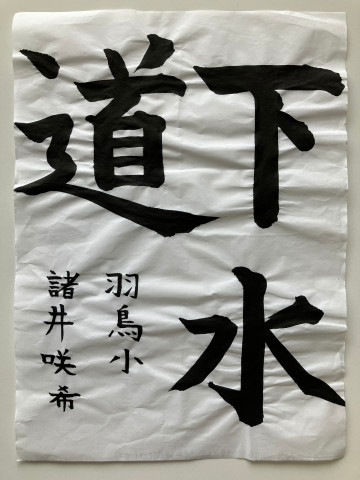 下水
道
羽鳥小
諸井咲希